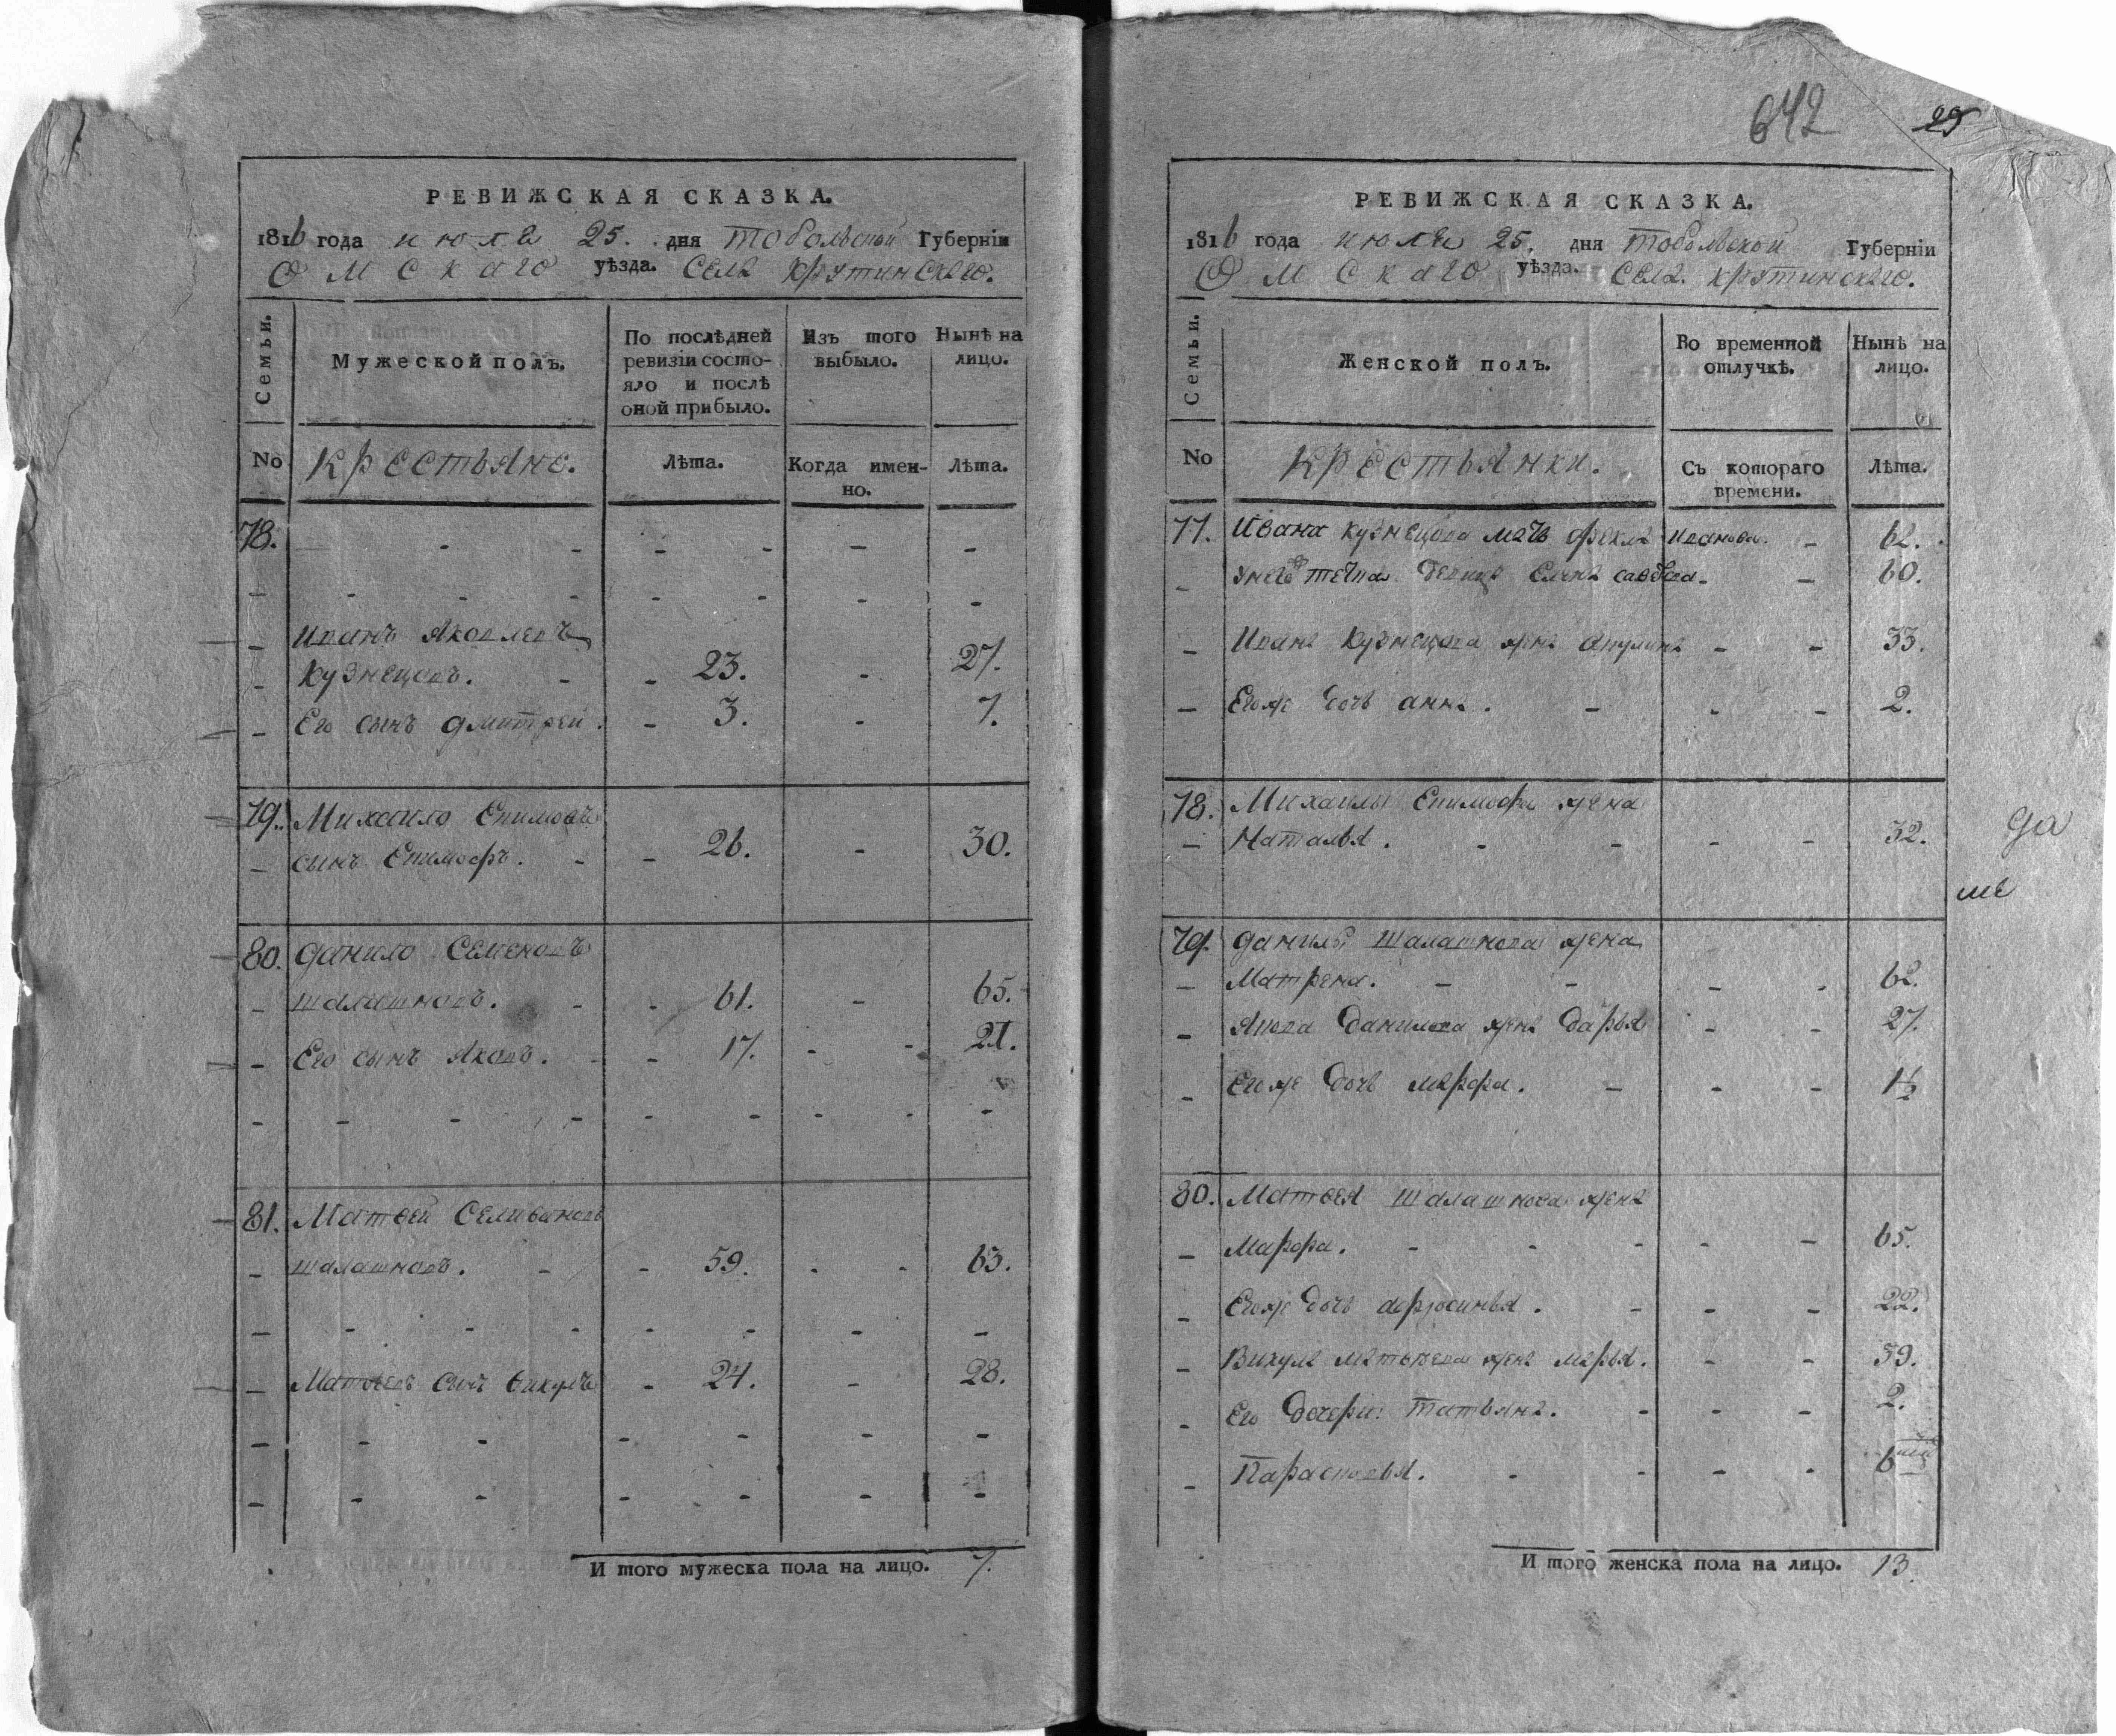 РЕВИЖСКАЯ СКАЗКА.
1816 года июля 25. дня Тобольской Губерніи
Омскаго уѣзда. Села Крутинскаго.
Семьи.
Мужеской полъ.
По послѣдней ревизіи состояло и послѣ оной прибыло.
Изъ того выбыло.
Нынѣ на лицо.
No
Крестьяне.
Лѣта.
Когда именно.
Лѣта.
78. - - - - - -
- - - - - - - -
- Иванъ Яковлевъ
- Кузнецовъ. - - 23. - 27.
- Его сынъ Дмитрей. - 3. - 7.
79. Михайло Епимовъ
- сынъ Епимофъ. - - 26. - 30.
80. Данило Семеновъ
- Шалашновъ. - - 61. - 65.
- Его сынъ Яковъ. - - 17. - - 21.
- - - - - - - - -
81. Матвей Селивановъ
- Шалашновъ. - - 59. - - 63.
- - - - - - - -
- Матвеевъ сынъ Викулъ - 24. - 28.
- - - - - - -
- - - - - - -
И того мужеска пола на лицо. 7.
642
29
РЕВИЖСКАЯ СКАЗКА.
1816 года июля 25. дня Тобольской Губерніи
Омскаго уѣзда. Села Крутинскаго.
Семьи.
Женской полъ.
Во временной отлучкѣ.
Нынѣ на лицо.
No
Крестьянки.
Съ котораго времени.
Лѣта.
77. Ивана Кузнецова мать Фекла Иванова. - 62.
- Унего тетка девица Елена - 60.
- Ивана Кузнецова жена Акулина - - 33.
- Егоже дочь Анна. - - - 2.
78. Михаилы Епимофа жена
- Наталья. - - - - 32.
да
ме
79. Данилы Шалашнова жена
- Матрена. - - - - 62.
- Якова Данилова жена Дарья - - 27.
- Егоже дочь Марфа. - - - 1½
80. Матвея Шалашнова жена
- Марфа. - - - - - 65.
- Егоже дочь Афросинья. - - - 22.
- Викула Матвеева жена Марья. - - 39.
- Его дочери: Татьяна. - - - 2.
- Парасковья. - - - - 6
И того женска пола на лицо. 13.